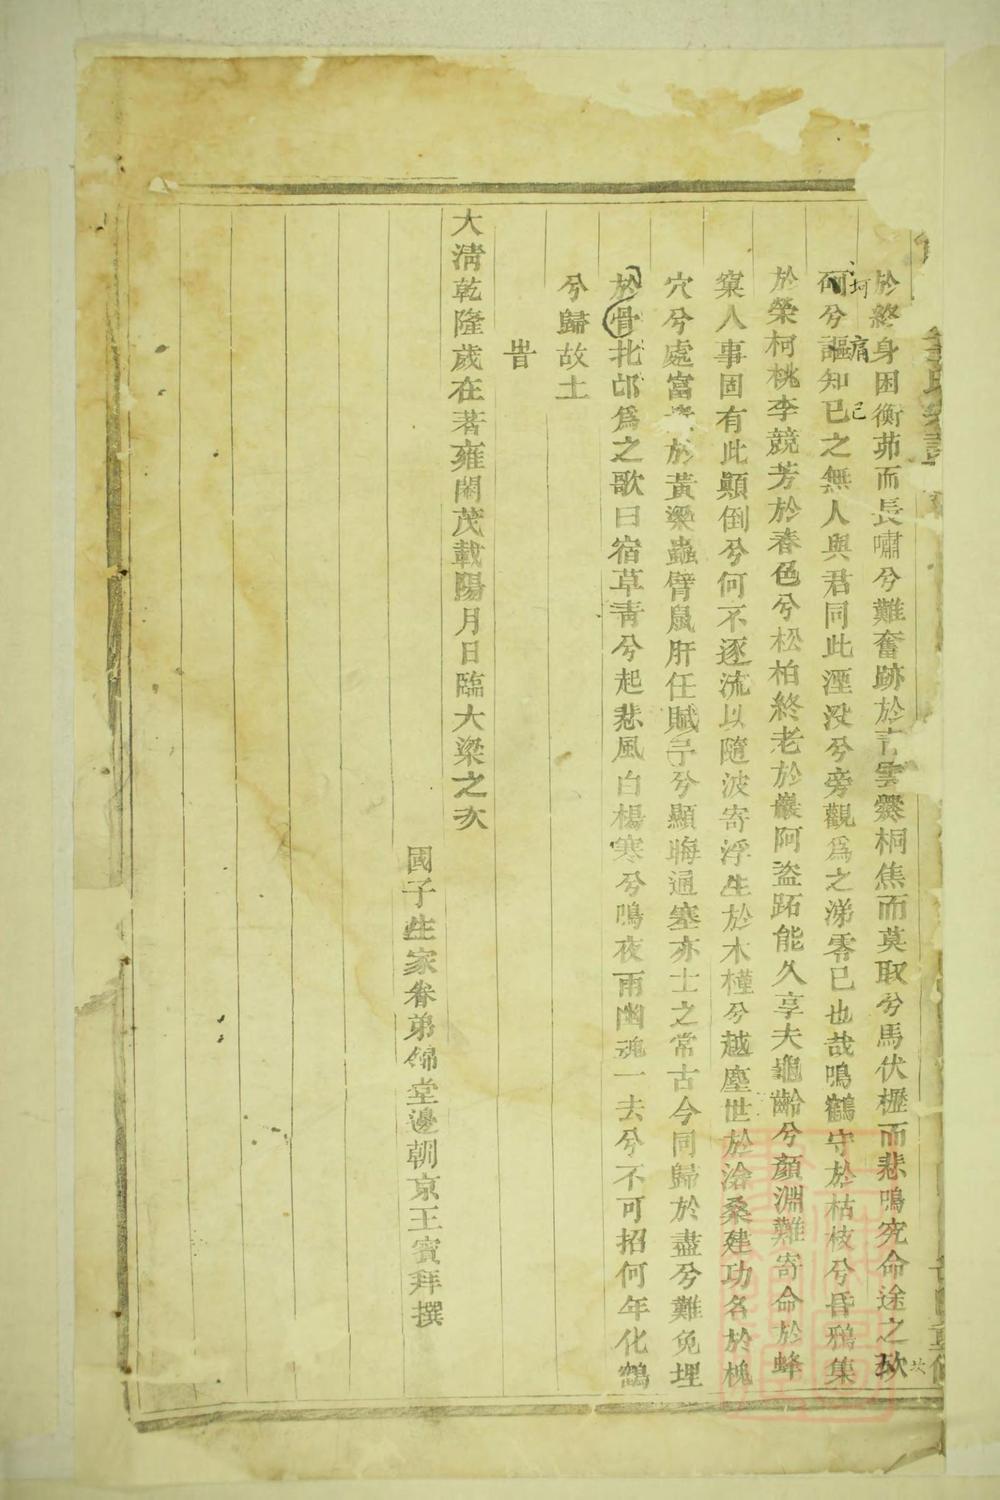 於終身困衡茆而長嘯兮難奮跡於青雲爨桐焦而莫取兮馬伏櫪而悲鳴究命途之坎
坷兮謳知已之無人與君同此湮沒兮旁觀爲之涕零已也哉鳴鶴守於枯枝兮昏鴉集
坷 痛 己 坎
於榮柯桃李競芳於春色兮松柏終老於巖阿盜跖能久享夫龜齡兮顏淵難寄命於蜂
窠人事固有此顛倒兮何不逐流以隨波寄浮生於木槿兮越塵世於滄桑建功名於槐
穴兮處富貴於黃粱蟲臂鼠肝任賦予兮顯晦通塞亦士之常古今同歸於盡兮難免埋
於骨北邙爲之歌曰宿草靑兮起悲風白楊寒兮鳴夜雨幽魂一去兮不可招何年化鶴
兮歸故土
旹
大淸乾隆歲在著雍閹茂載陽月日臨大梁之次
國子生家眷弟錦堂邊朝京王賓拜撰